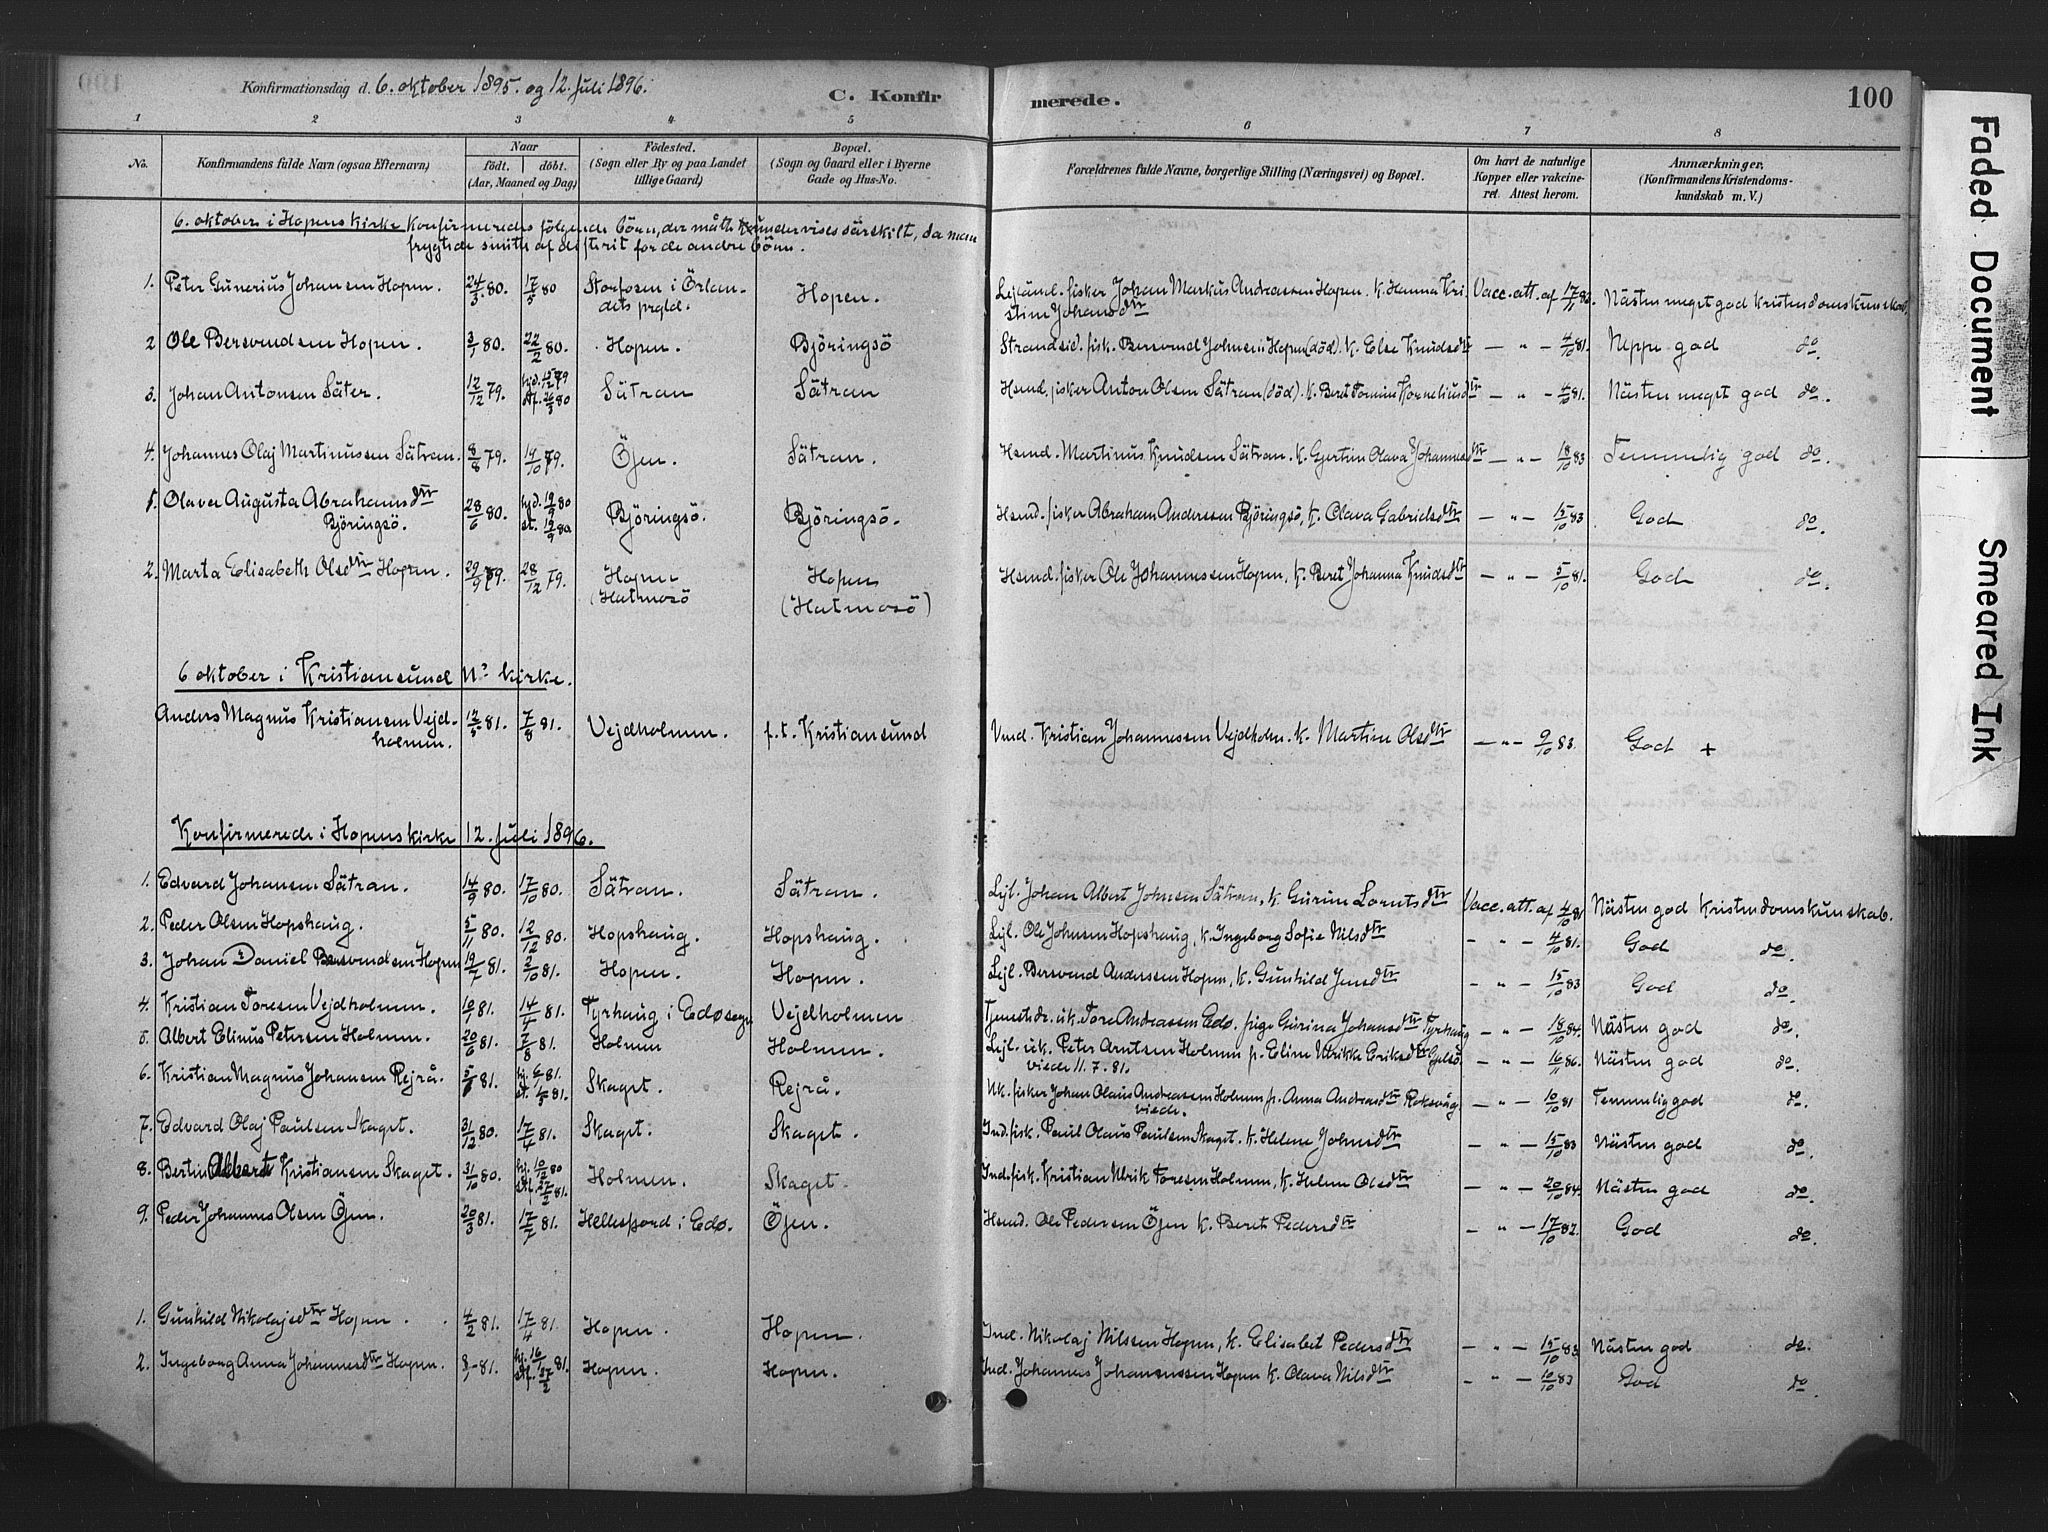 Konfirmationsdag d. 6. oktober 1895. og 12. Juli 1896.
C. Konfirmerede.
100
1 2 3 4 5 6 7 8
No.
Konfirmandens fulde Navn (ogsaa Efternavn)
Naar
födt. döbt.
(Aar, Maaned og Dag)
Födested.
(Sogn eller By og paa Landet
tillige Gaard)
Bopæl.
(Sogn og Gaard eller i Byerne
Gade og Hus-No.
Forældrenes fulde Navne, borgerlige Stilling (Næringsvei) og Bopæl.
Om havt de naturlige
Kopper eller vakcine-
ret. Attest herom.
Anmærkninger.
(Konfirmandens Kristendoms-
kundskab m. V.)
6. oktober i Hopens kirke konfirmeredes fölgende börn, der måtte undervises särskilt, da man
frygtede smitte af difterit for de andre börn.
1. Peter Gunerius Johansen Hopen. 24/3 80. 17/5 80 Storfosen i Örlandets prgld. Hopen. Lejländ. fisker Johan Markus Andreassen Hopen. K. Hanna Kristine Johansdtr Vacc. att. af 17/11 82. Nästen meget god kristendomskunskab.
2 Ole Bersvendsen Hopen. 3/1 80. 22/2 80. Hopen. Björingsö Strandsid. fisk. Bersvend Johnsen Hopen (död). K. Else Knudsdtr — " — 4/10 81. Neppe god do.
3. Johan Antonsen Säter. 12/12 79. hjd. 15/12 79 stf. 26/3 80 Sätran Sätran Hsmd. fisker Anton Olsen Sätran (död). K. Beret Tomine Korneliusdtr — " — 4/10 81. Nästen meget god do.
4. Johannes Olaj Martinussen Sätran. 8/8 79. 19/10 79. Öjen. Sätran. Hsmd. Martinus Knudsen Sätran. K. Gjertine Olava Johannesdtr — " — 18/10 83 Temmelig god do.
5. Olava Augusta Abrahamsdtr Björingsö. 28/6 80. hjd. 19/9 80 st. 19/9 80. Björingsö. Björingsö. Hsmd. fisker Abraham Anderssen Björingsö, K. Olava Gabrielsdtr — " — 15/10 83 God do.
2. Marta Elisabeth Olsdtr Hopen. 29/9 79. 28/12 79. Hopen (Hatmosö Hopen (Hatmosö) Hsmd. fisker Ole Johannessen Hopen, K. Beret Johanna Knudsdtr — " — 5/10 81. God do.
6 oktober i Kristiansund N's kirke.
Anders Magnus Kristiansen Vejdholmen. 12/5 81. 7/8 81. Vejdholmen. f.t. Kristiansund Vmd. Kristian Johannessen Vejdholm. K. Martine Olsdtr — " — 9/10 83. God +
Konfirmerede i Hopens kirke 12. Juli 1896.
1. Edvard Johansen Sätran. 14/9 80. 17/10 80. Sätran. Sätran. Lejl. Johan Albert Johnsen Sätran, K. Gurine Lorntsdtr Vacc. att. af 4/10 81 Nästen god Kristendomskunskab.
2. Peder Olsen Hopshaug. 5/11 80. 12/12 80. Hopshaug. Hopshaug. Lejl. Ole Johnsen Hopshaug, K. Ingeborg Sofie Nilsdtr - " - 4/10 81. God do.
3. Johan Daniel Bersvendsen Hopen 19/7 81. 2/10 81. Hopen. Hopen. Lejl. Bersvend Anderssen Hopen, K. Gunhild Jensdtr - " - 15/10 83 God do.
4. Kristian Toresen Vejdholmen. 10/1 81. 14/4 81. Tyrhaug i Edø sogn Vejdholmen Tjenestdr. uk. Tore Andreassen Edø. pige Gurina Johansdtr Tyrhaug - " - 18/10 84. Nästen god do.
5. Albert Elinus Petersen Holmen. 20/6 81. 7/8 81. Holmen Holmen. Lejl. uk. Peter Arntsen Holmen p. Eline Ulrikke Eriksdtr viede 11.7.81. - " - 16/11 86. Nästen god do.
6. Kristian Magnus Johansen Rejrå. Skaget. Rejrå. Uk. fisker Johan Olaus Andreassen Holmen p. Anna Andreasdtr Roksvåg viede. - " - 10/10 81 Temmelig god do.
7. Edvard Olaj Paulsen Skaget. 31/12 80. 17/4 81. Skaget. Skaget. Ind. fisk. Paul Olaus Paulsen Skaget. K. Helene Johnsdtr - " - 15/10 83 Nästen god do.
8. Bertin Albert Kristiansen Skaget. 31/10 80. hj. 10/12 80 stf. 27/2 81. Holmen. Skaget. Ind. fisk. Kristian Ulrik Toresen Holmen, K. Helene Olsdtr - " - 20/10 84. Nästen god do.
9. Peder Johannes Olsen Öjen. 20/3 81. 17/7 81. Hellesfjord i Edø. Öjen. Hsmd. Ole Pedersen Öjen K. Beret Pedersdtr - " - 17/10 82. God do.
1. Gunhild Nikolajsdtr Hopen. 4/2 81. 17/4 81. Hopen. Hopen. Ind. Nikolaj Nilssen Hopen, K. Elisabet Pedersdtr - " - 15/10 83 Nästen god do.
2. Ingeborg Anna Johannesdtr Hopen. 8/1 81. hj. 16/1 81. stf. 27/2 Hopen. Hopen. Ind. Johannes Johannessen Hopen K. Olava Nilsdtr - " - 10/10 83 God do.
Faded Document
Smeared Ink